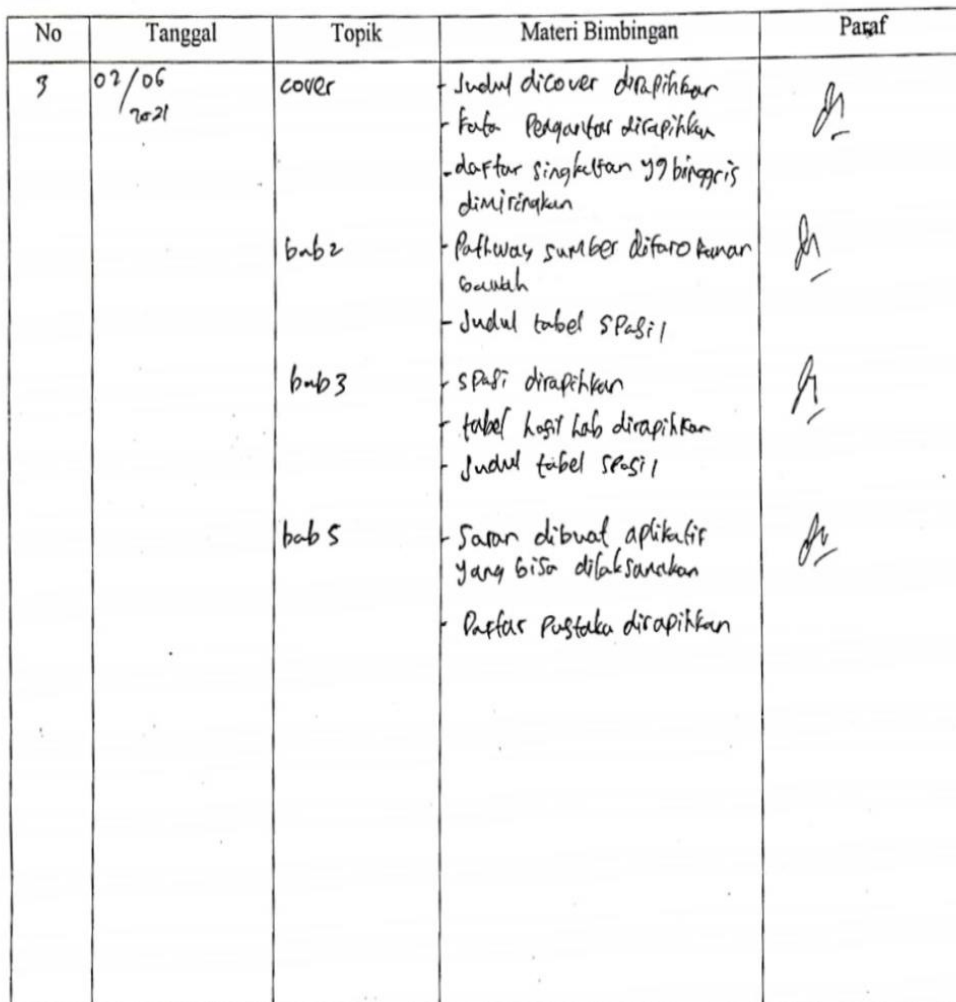 No Tanggal Topik Materi Bimbingan Paraf
3 02/06 cover - Judul dicover dirapihkan
/2021 - kata Pengantar dirapihkan
- daftar singkatan yg binggris
dimiringkan
bab2 - Pathway sumber ditaro kanan
bawah
- Judul tabel sPasi 1
bab3 - sPasi dirapihkan
- tabel hasil Lab dirapihkan
- Judul tabel sPasi 1
bab 5 - Saran dibuat aplikatif
yang bisa dilaksanakan
- Daftar Pustaka dirapihkan